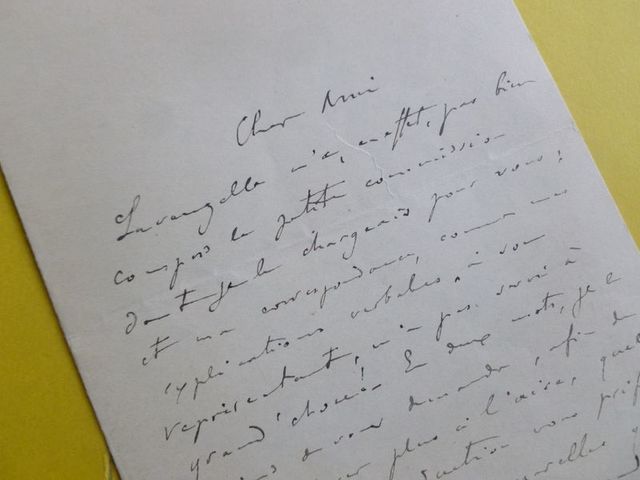 Cher Ami
n'a, en effet, pas bien
compris la petite commission
dont je le chargeais pour vous,
et ma correspondance, comme mes
explications verbales, à son
représentant, n'a pas servi à
grand'chose! En deux mots, je
vous demander, afin de
plus à l'aise, quel
vous